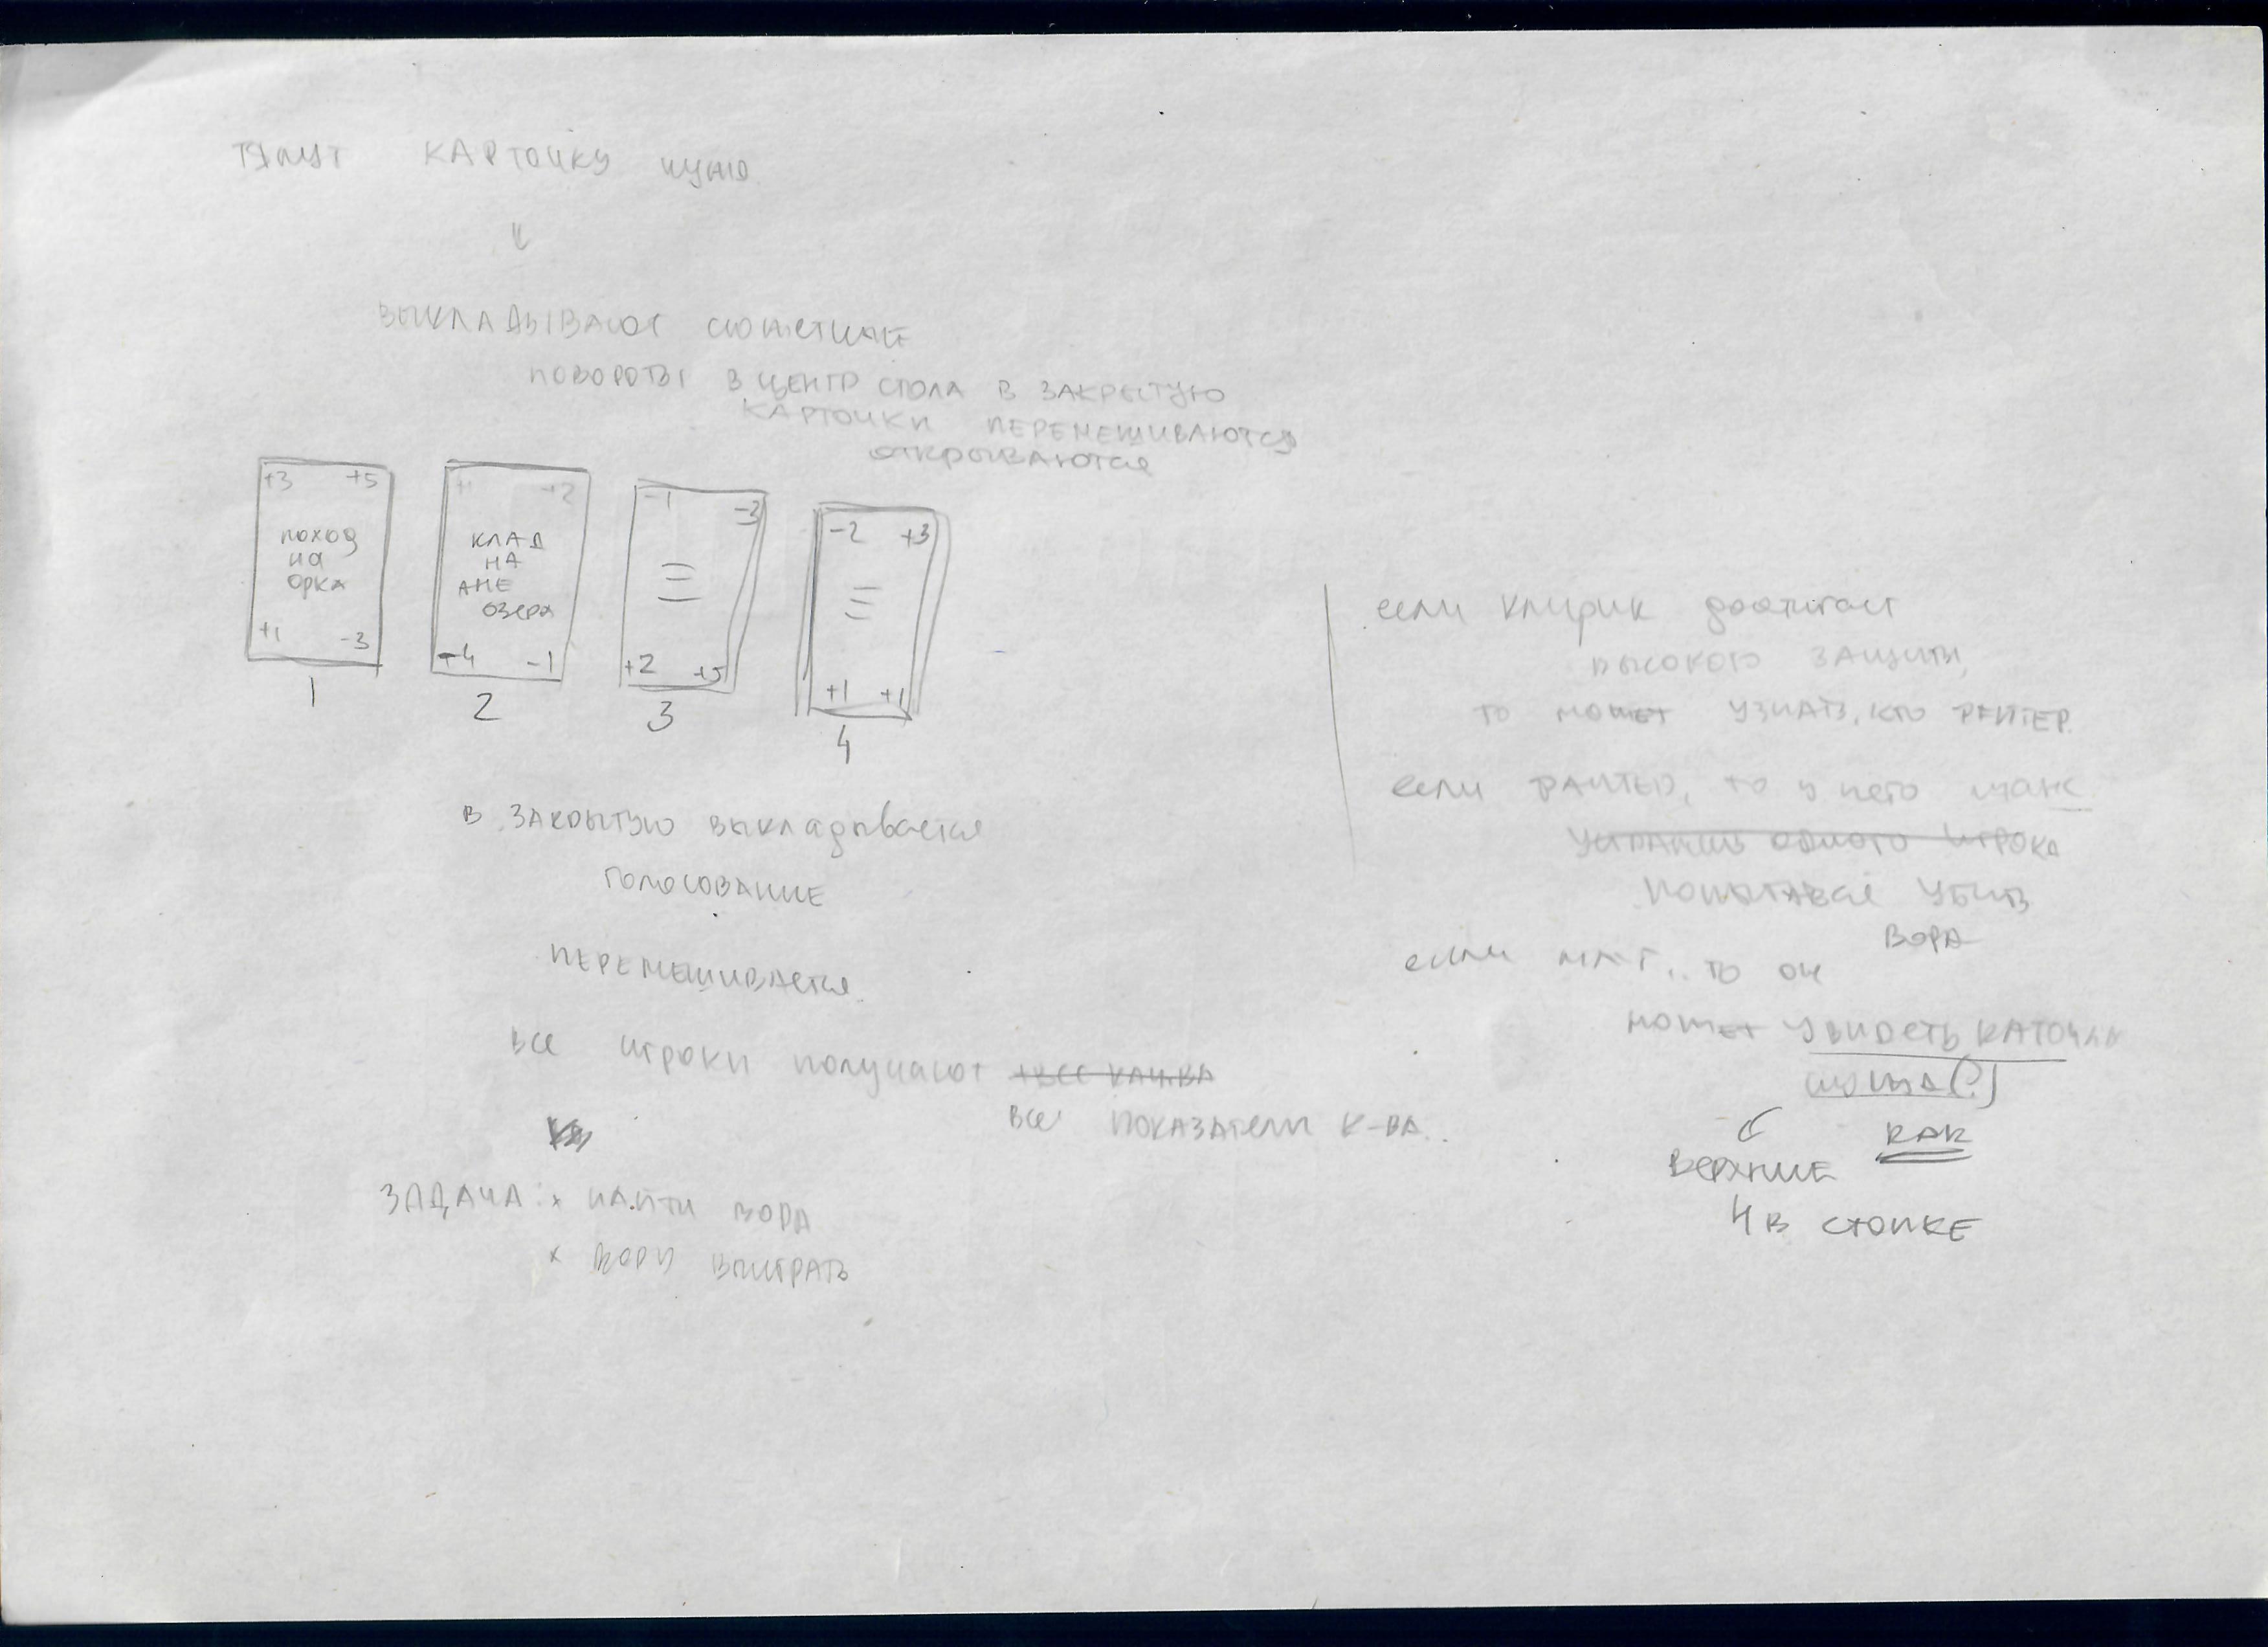 тянут карточку
выкладывают сюжетные
повороты в центр стола в закрытую
карточки перемешиваются
открываются
+3 +5
поход
на
орка
+1 -3
1
+1 +2
клад
на
дне
озера
-4 -1
2
-1 -3
+2 +5
3
-2 +3
+1 +1
4
в закрытую выкладывается
голосование
перемешивается.
все игроки получают
все показатели к-ва.
задача: × найти вора
× вору выиграть
если клирик достигает
высокого защиты,
то может узнать, кто
если то у него шанс
одного игрока
попытаться убить
вора
если маг, то он
может увидеть каточки
(?)
как
верхние
4 в стопке